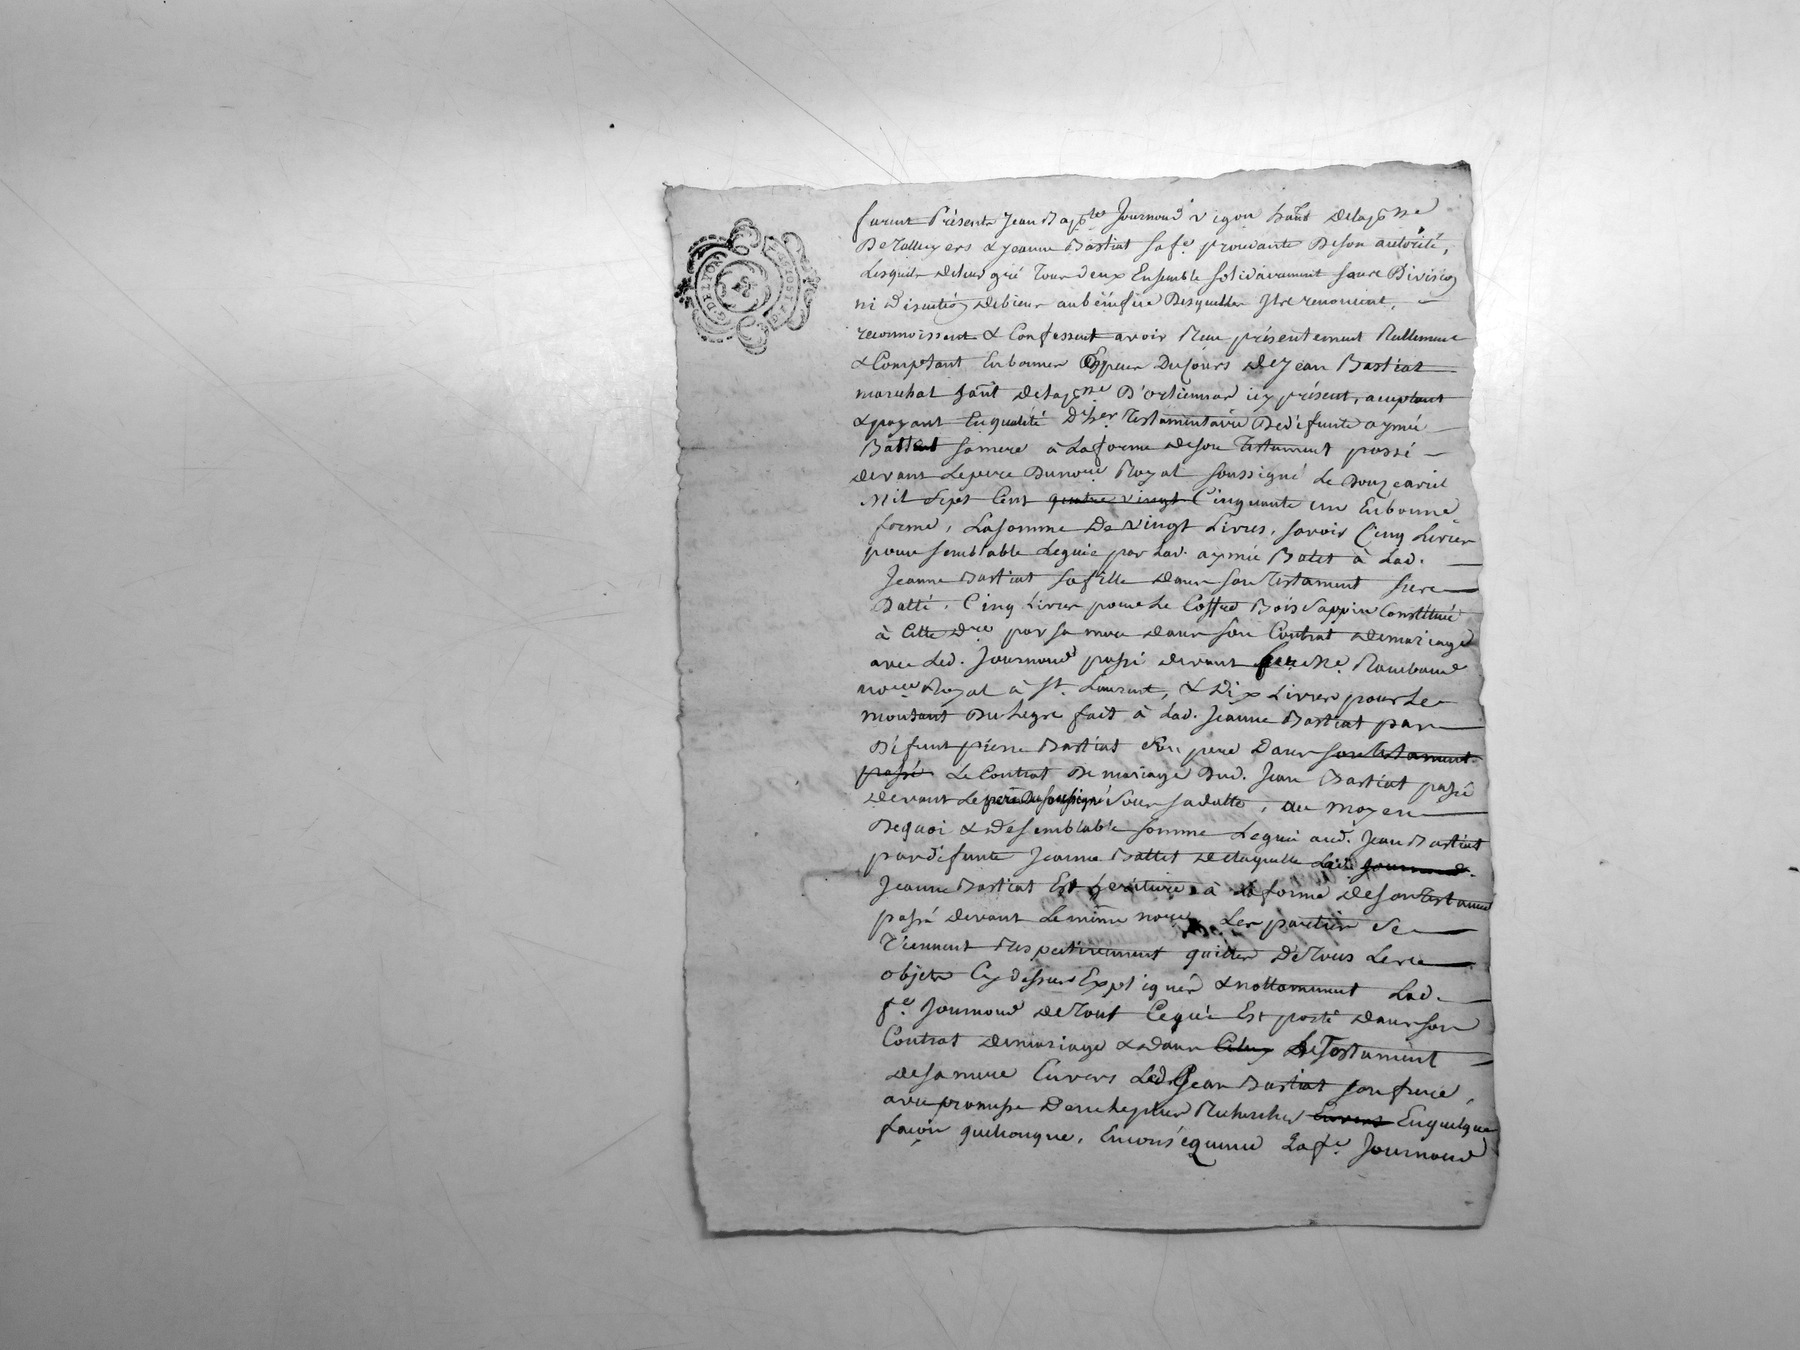 G. DE LYON
furent Présents Jean Bap.te Journoud vigon hãnt delapsse
De Talluyers & Jeanne Bastiat safe. procédante De son autorité,
Lesquels deleur gré Tour deux Ensemble solidairement sans Division
ni Discution debiens aubénéfice Desquelles Ils renoncent,
reconnoissent & Confessent avoir Reçu présentement Réellement
& Comptant Enbonnes Espèces Ducours de Jean Bastiat
maréchal hãnt delapsse D'orliennas icy présent, acceptant
& payant Enqualité D'her Testamentaire De défunte aymée
Battet samere à Laforme deson Testament passé
devant Lepere Dunore Royal soussigné Le Douze avril
Mil Sept Cent quatre vingt Cinquante un Enbonne
forme, Lasomme De vingt Livres, savoir Cinq Livres
pour semblable Leguée par Lad. aymée Batet à Lad.
Jeanne Bastiat sa fille dans son Testament sus
Datté, Cinq Livres pour Le Coffre Bois Sappin Constitué
à Cette Dre par sa mere dans son Contrat demariage
avec Led. Journoud passé devant Me. Rambaud
nore Royal à St. Laurent, & Dix Livres pour Le
montant Du Legs fait à Lad. Jeanne Bastiat par
Défunt pierre Bastiat son pere Dans son Testament
passé Le Contrat De mariage Dud. Jean Bastiat passé
devant Le pere Du soussigné Sous sadatte, au moyen
Dequoi & de semblable somme Leguée aud. Jean Bastiat
par défunte Jeanne Battet de laquelle Lad. Journoud
Jeanne Bastiat Est héritiere à la forme de son Testament
passé devant Lemême nore Les parties Se
Tiennent Respectivement quittes De Tous Les
objets Cy dessus Expliqués & nottamment Lad.
fe. Journoud de Tout Cequi Est porté dans son
Contrat demariage & dans Celuy Le Testament
desa mere Envers Led. Jean Bastiat son frere,
avec promesse Dene Leplus Rechercher Envers Enquelque
façon quelconque, Enconséquence Lafe. Journoud